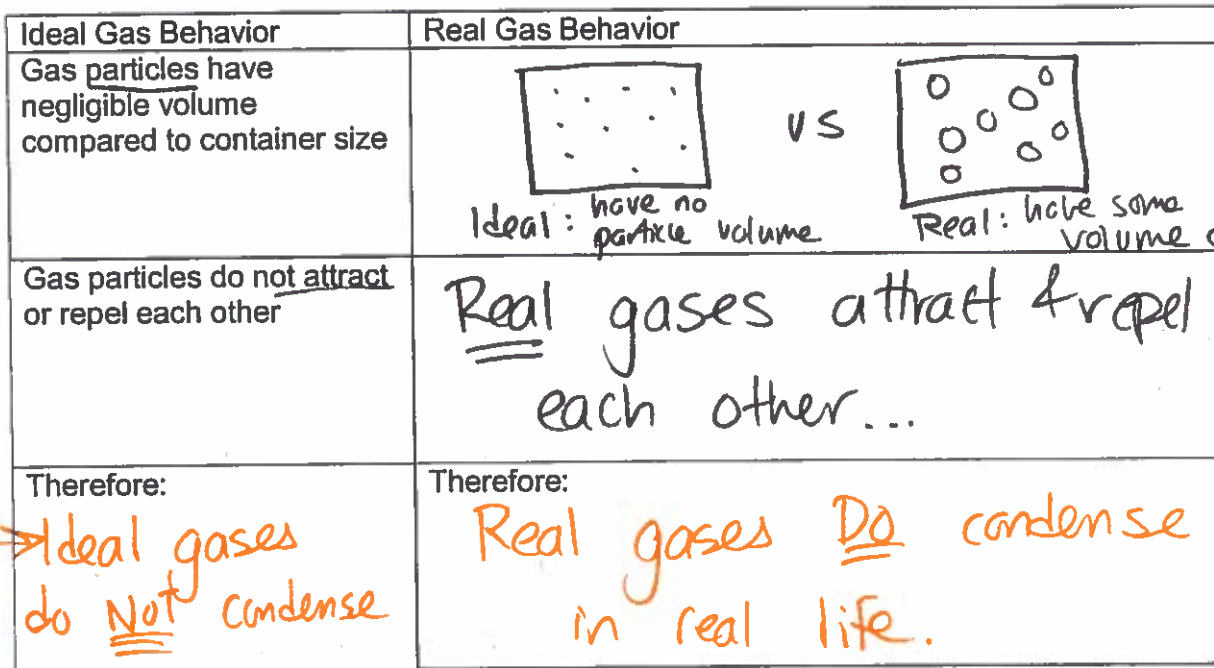 Ideal Gas Behavior
Real Gas Behavior
Gas particles have
negligible volume
compared to container size
vs
Ideal: have no
particle volume
Real: have some
volume
Gas particles do not attract
or repel each other
Real gases attract & repel
each other...
Therefore:
Ideal gases
do Not condense
Therefore:
Real gases DO condense
in real life.